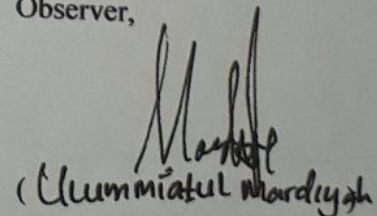 Observer,
(Uummiatul Mardiyah